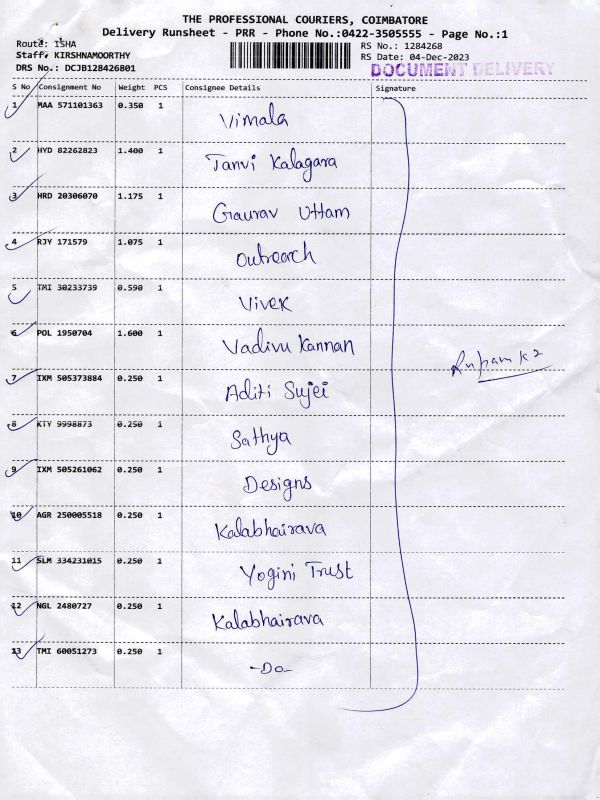 THE PROFESSIONAL COURIERS, COIMBATORE
Delivery Runsheet - PRR - Phone No.:0422-3505555 - Page No.:1
Route: ISHA
RS No.: 1284268
Staff: KIRSHNAMOORTHY
RS Date: 04-Dec-2023
DRS No.: DCJB128426801
DOCUMENT DELIVERY
S No Consignment No Weight PCS Consignee Details Signature
1 MAA 571101363 0.350 1 Vimala
2 HYD 82262823 1.400 1 Tanvi Kalagara
3 HRD 20306070 1.175 1 Gaurav Uttam
4 RJY 171579 1.075 1 Outreach
5 TMI 30233739 0.590 1 Vivek
6 POL 1950704 1.600 1 Vadivu Kannan
7 IXM 505373884 0.250 1 Aditi Sujei
8 KTY 9998873 0.250 1 Sathya
9 IXM 505261062 0.250 1 Designs
10 AGR 250005518 0.250 1 Kalabhairava
11 SLM 334231015 0.250 1 Yogini Trust
12 NGL 2480727 0.250 1 Kalabhairava
13 TMI 60051273 0.250 1 -Do-